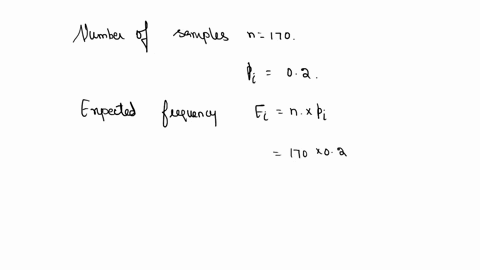 Number of samples n = 170.
Pi = 0.2.
Expected frequency Ei = n. x pi
= 170 x 0.2